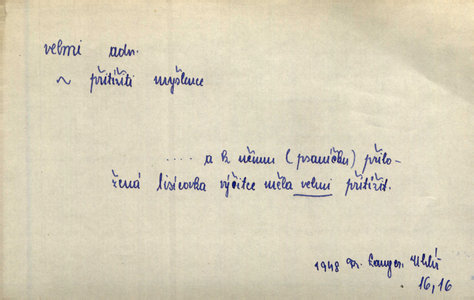 velmi adv.
~ přitížiti myšlence
.... a k němu (psaníčku) přilo-
žená lisicovka výčitce měla velmi přitížit.
1948 Fr. Langer.
16,16